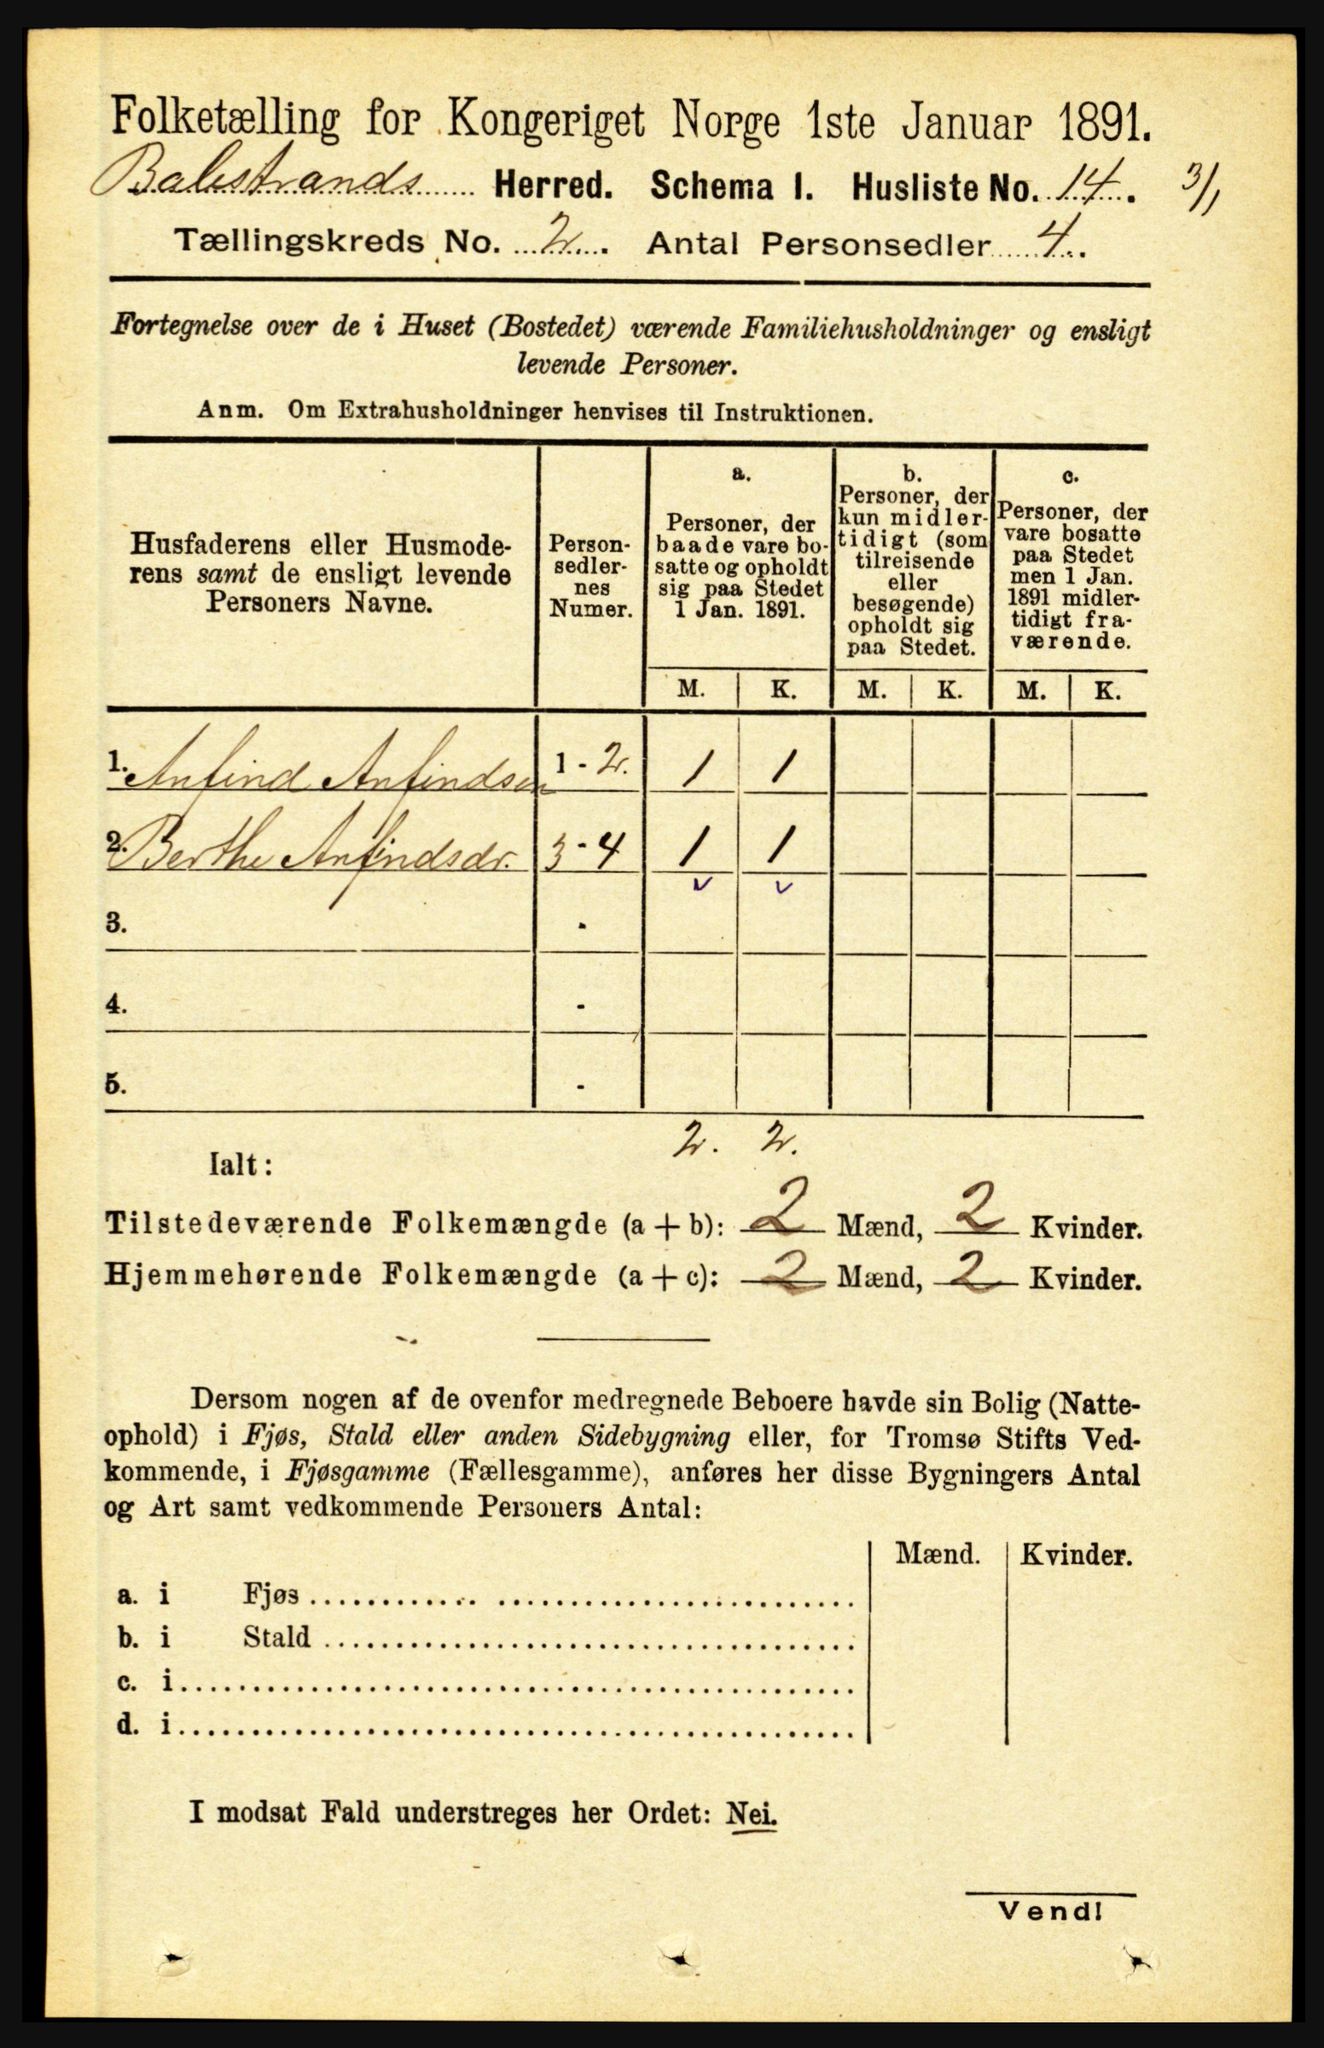 Folketælling for Kongeriget Norge 1ste Januar 1891.
Balestrands Herred. Schema I. Husliste No. 14. 3/1
Tællingskreds No. 2. Antal Personsedler 4.
Fortegnelse over de i Huset (Bostedet) værende Familiehusholdninger og ensligt
levende Personer.
Anm. Om Extrahusholdninger henvises til Instruktionen.
Husfaderens eller Husmode-
rens samt de ensligt levende
Personers Navne.
Person-
sedler-
nes
Numer.
a.
Personer, der
baade vare bo-
satte og opholdt
sig paa Stedet
1 Jan. 1891.
b.
Personer, der
kun midler-
tidigt (som
tilreisende
eller
besøgende)
opholdt sig
paa Stedet.
c.
Personer, der
vare bosatte
paa Stedet
men 1 Jan.
1891 midler-
tidigt fra-
værende.
M. K. M. K. M. K.
1. Anfind Anfindsen 1 - 2. 1 1
2. Berthe Anfindsdr. 3 - 4 1 1
3. -
4. -
5. -
2. 2.
Ialt:
Tilstedeværende Folkemængde (a + b): 2 Mænd, 2 Kvinder.
Hjemmehørende Folkemængde (a + c): 2 Mænd, 2 Kvinder.
Dersom nogen af de ovenfor medregnede Beboere havde sin Bolig (Natte-
ophold) i Fjøs, Stald eller anden Sidebygning eller, for Tromsø Stifts Ved-
kommende, i Fjøsgamme (Fællesgamme), anføres her disse Bygningers Antal
og Art samt vedkommende Personers Antal:
Mænd. Kvinder.
a. i Fjøs
b. i Stald
c. i
d. i
I modsat Fald understreges her Ordet: Nei.
Vend!